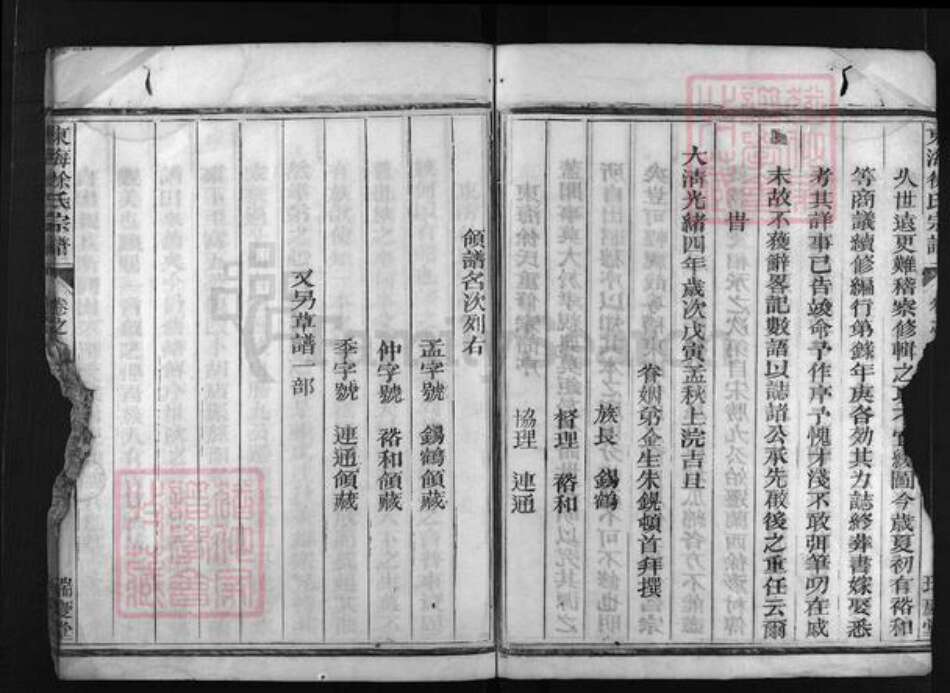 久世遠更難稽察修輯之
圖今歲夏初有裕和
等商議續修編行第錄年庚各効其力誌終葬書嫁娶悉
考其詳事已告竣命予作序予愧才淺不敢弭筆叨在戚
末故不獲辭畧記數語以誌諸公承先啟後之重任云爾
旹
大清光緒四年歲次戊寅孟秋上浣吉旦
眷姻弟金生朱鋭頓首拜撰
族長 錫鶴
督理 裕和
協理 連通
領譜名次列右
孟字號 錫鶴領藏
仲字號 裕和領藏
季字號 連通領藏
又另草譜一部
東海徐氏宗譜
卷之
瑞慶堂